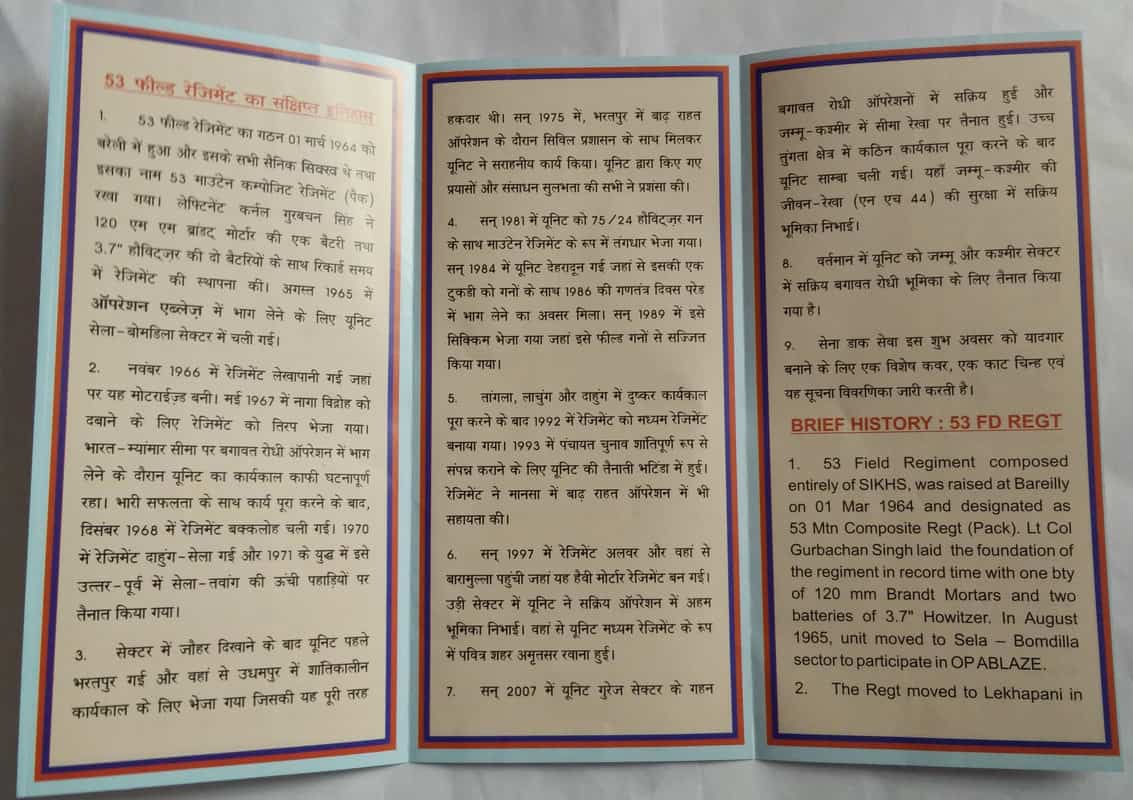 53 फील्ड रेजिमेंट का संक्षिप्त इतिहास
1. 53 फील्ड रेजिमेंट का गठन 01 मार्च 1964 को
बरेली में हुआ और इसके सभी सैनिक सिक्ख थे तथा
इसका नाम 53 माउंटेन कम्पोजिट रेजिमेंट (पैक)
रखा गया। लेफ्टिनेंट कर्नल गुरबचन सिंह ने
120 एम एम ब्रांडट् मोर्टार की एक बैटरी तथा
3.7" हौविट्ज़र की दो बैटरियों के साथ रिकार्ड समय
में रेजिमेंट की स्थापना की। अगस्त 1965 में
ऑपरेशन एब्लेज़ में भाग लेने के लिए यूनिट
सेला-बोमडिला सेक्टर में चली गई।
2. नवंबर 1966 में रेजिमेंट लेखापानी गई जहां
पर यह मोटराईज़्ड बनी। मई 1967 में नागा विद्रोह को
दबाने के लिए रेजिमेंट को तिरप भेजा गया।
भारत-म्यांमार सीमा पर बगावत रोधी ऑपरेशन में भाग
लेने के दौरान यूनिट का कार्यकाल काफी घटनापूर्ण
रहा। भारी सफलता के साथ कार्य पूरा करने के बाद,
दिसंबर 1968 में रेजिमेंट बक्कलोह चली गई। 1970
में रेजिमेंट दाहुंग-सेला गई और 1971 के युद्ध में इसे
उत्तर-पूर्व में सेला-तवांग की ऊंची पहाड़ियों पर
तैनात किया गया।
3. सेक्टर में जौहर दिखाने के बाद यूनिट पहले
भरतपुर गई और वहां से उधमपुर में शांतिकालीन
कार्यकाल के लिए भेजा गया जिसकी यह पूरी तरह
हकदार थी। सन् 1975 में, भरतपुर में बाढ़ राहत
ऑपरेशन के दौरान सिविल प्रशासन के साथ मिलकर
यूनिट ने सराहनीय कार्य किया। यूनिट द्वारा किए गए
प्रयासों और संसाधन सुलभता की सभी ने प्रशंसा की।
4. सन् 1981 में यूनिट को 75/24 हौविट्ज़र गन
के साथ माउटेन रेजिमेंट के रूप में तंगधार भेजा गया।
सन् 1984 में यूनिट देहरादून गई जहां से इसकी एक
टुकडी को गनों के साथ 1986 की गणतंत्र दिवस परेड
में भाग लेने का अवसर मिला। सन् 1989 में इसे
सिक्किम भेजा गया जहां इसे फील्ड गनों से सज्जित
किया गया।
5. तांगला, लाचुंग और दाहुंग में दुष्कर कार्यकाल
पूरा करने के बाद 1992 में रेजिमेंट को मध्यम रेजिमेंट
बनाया गया। 1993 में पंचायत चुनाव शांतिपूर्ण रूप से
संपन्न कराने के लिए यूनिट की तैनाती भटिंडा में हुई।
रेजिमेंट ने मानसा में बाढ़ राहत ऑपरेशन में भी
सहायता की।
6. सन् 1997 में रेजिमेंट अलवर और वहां से
बारामुल्ला पहुंची जहां यह हैवी मोर्टार रेजिमेंट बन गई।
उड़ी सेक्टर में यूनिट ने सक्रिय ऑपरेशन में अहम
भूमिका निभाई। वहां से यूनिट मध्यम रेजिमेंट के रूप
में पवित्र शहर अमृतसर रवाना हुई।
7. सन् 2007 में यूनिट गुरेज सेक्टर के गहन
बगावत रोधी ऑपरेशनों में सक्रिय हुई और
जम्मू-कश्मीर में सीमा रेखा पर तैनात हुई। उच्च
तुंगता क्षेत्र में कठिन कार्यकाल पूरा करने के बाद
यूनिट साम्बा चली गई। यहाँ जम्मू-कश्मीर की
जीवन-रेखा (एन एच 44) की सुरक्षा में सक्रिय
भूमिका निभाई।
8. वर्तमान में यूनिट को जम्मू और कश्मीर सेक्टर
में सक्रिय बगावत रोधी भूमिका के लिए तैनात किया
गया है।
9. सेना डाक सेवा इस शुभ अवसर को यादगार
बनाने के लिए एक विशेष कवर, एक काट चिन्ह एवं
यह सूचना विवरणिका जारी करती है।
BRIEF HISTORY : 53 FD REGT
1. 53 Field Regiment composed
entirely of SIKHS, was raised at Bareilly
on 01 Mar 1964 and designated as
53 Mtn Composite Regt (Pack). Lt Col
Gurbachan Singh laid the foundation of
the regiment in record time with one bty
of 120 mm Brandt Mortars and two
batteries of 3.7" Howitzer. In August
1965, unit moved to Sela – Bomdilla
sector to participate in OP ABLAZE.
2. The Regt moved to Lekhapani in